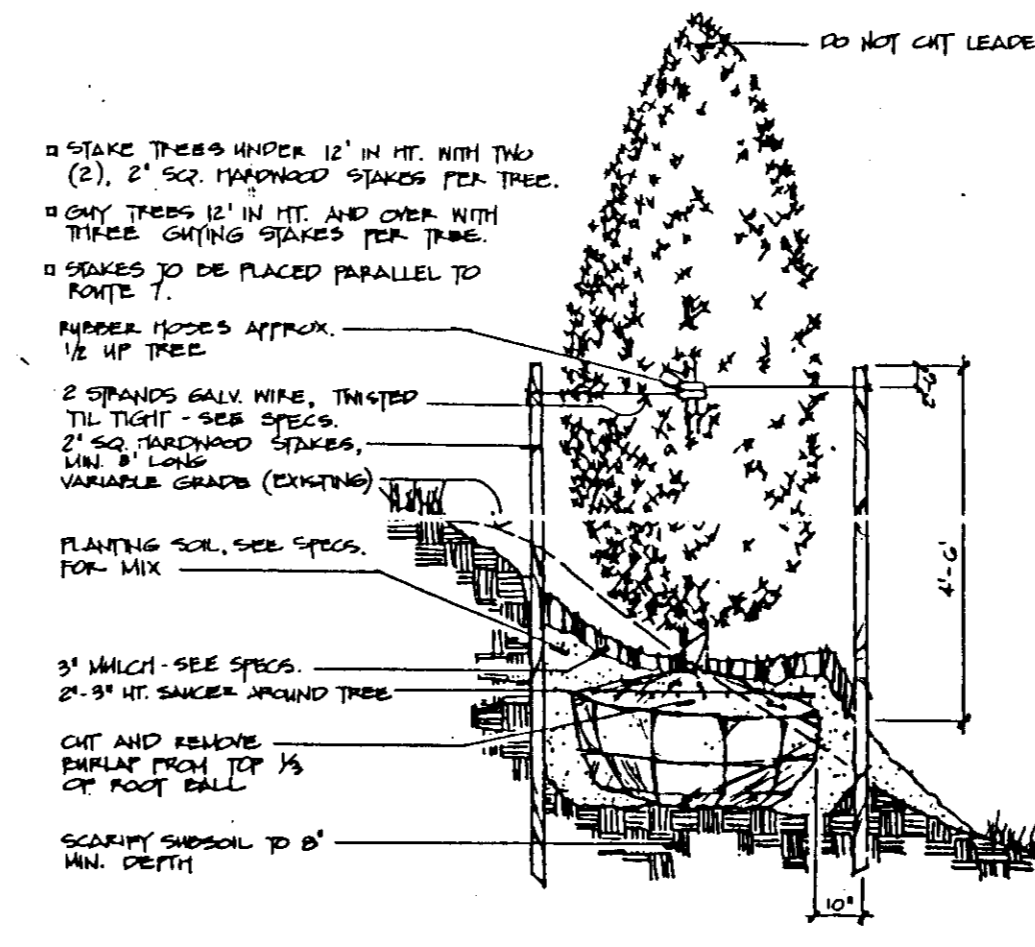 DO NOT CUT LEADE
□ STAKE TREES UNDER 12' IN HT. WITH TWO
(2), 2" SQ. HARDWOOD STAKES PER TREE.
□ GUY TREES 12' IN HT. AND OVER WITH
THREE GUYING STAKES PER TREE.
□ STAKES TO BE PLACED PARALLEL TO
ROUTE 7.
RUBBER HOSES APPROX.
1/2 UP TREE
2 STRANDS GALV. WIRE, TWISTED
TIL TIGHT - SEE SPECS.
2" SQ. HARDWOOD STAKES,
MIN. 8' LONG
VARIABLE GRADE (EXISTING)
PLANTING SOIL, SEE SPECS.
FOR MIX
4'-6'
3" MULCH - SEE SPECS.
2"-3" HT. SAUCER AROUND TREE
CUT AND REMOVE
BURLAP FROM TOP 1/3
OF ROOT BALL
SCARIFY SUBSOIL TO 8"
MIN. DEPTH
10"